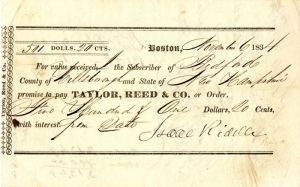 501 DOLLS. 20 CTS. Boston, November 6 1834
For value received, the Subscriber of Bedford
County of Hillsborough and State of New Hampshire
promise to pay TAYLOR, REED & CO. or Order,
Five Hundred & One Dollars, 20 Cents,
with interest from Date
Isaac Riddle
Taylor, Reed & Co.